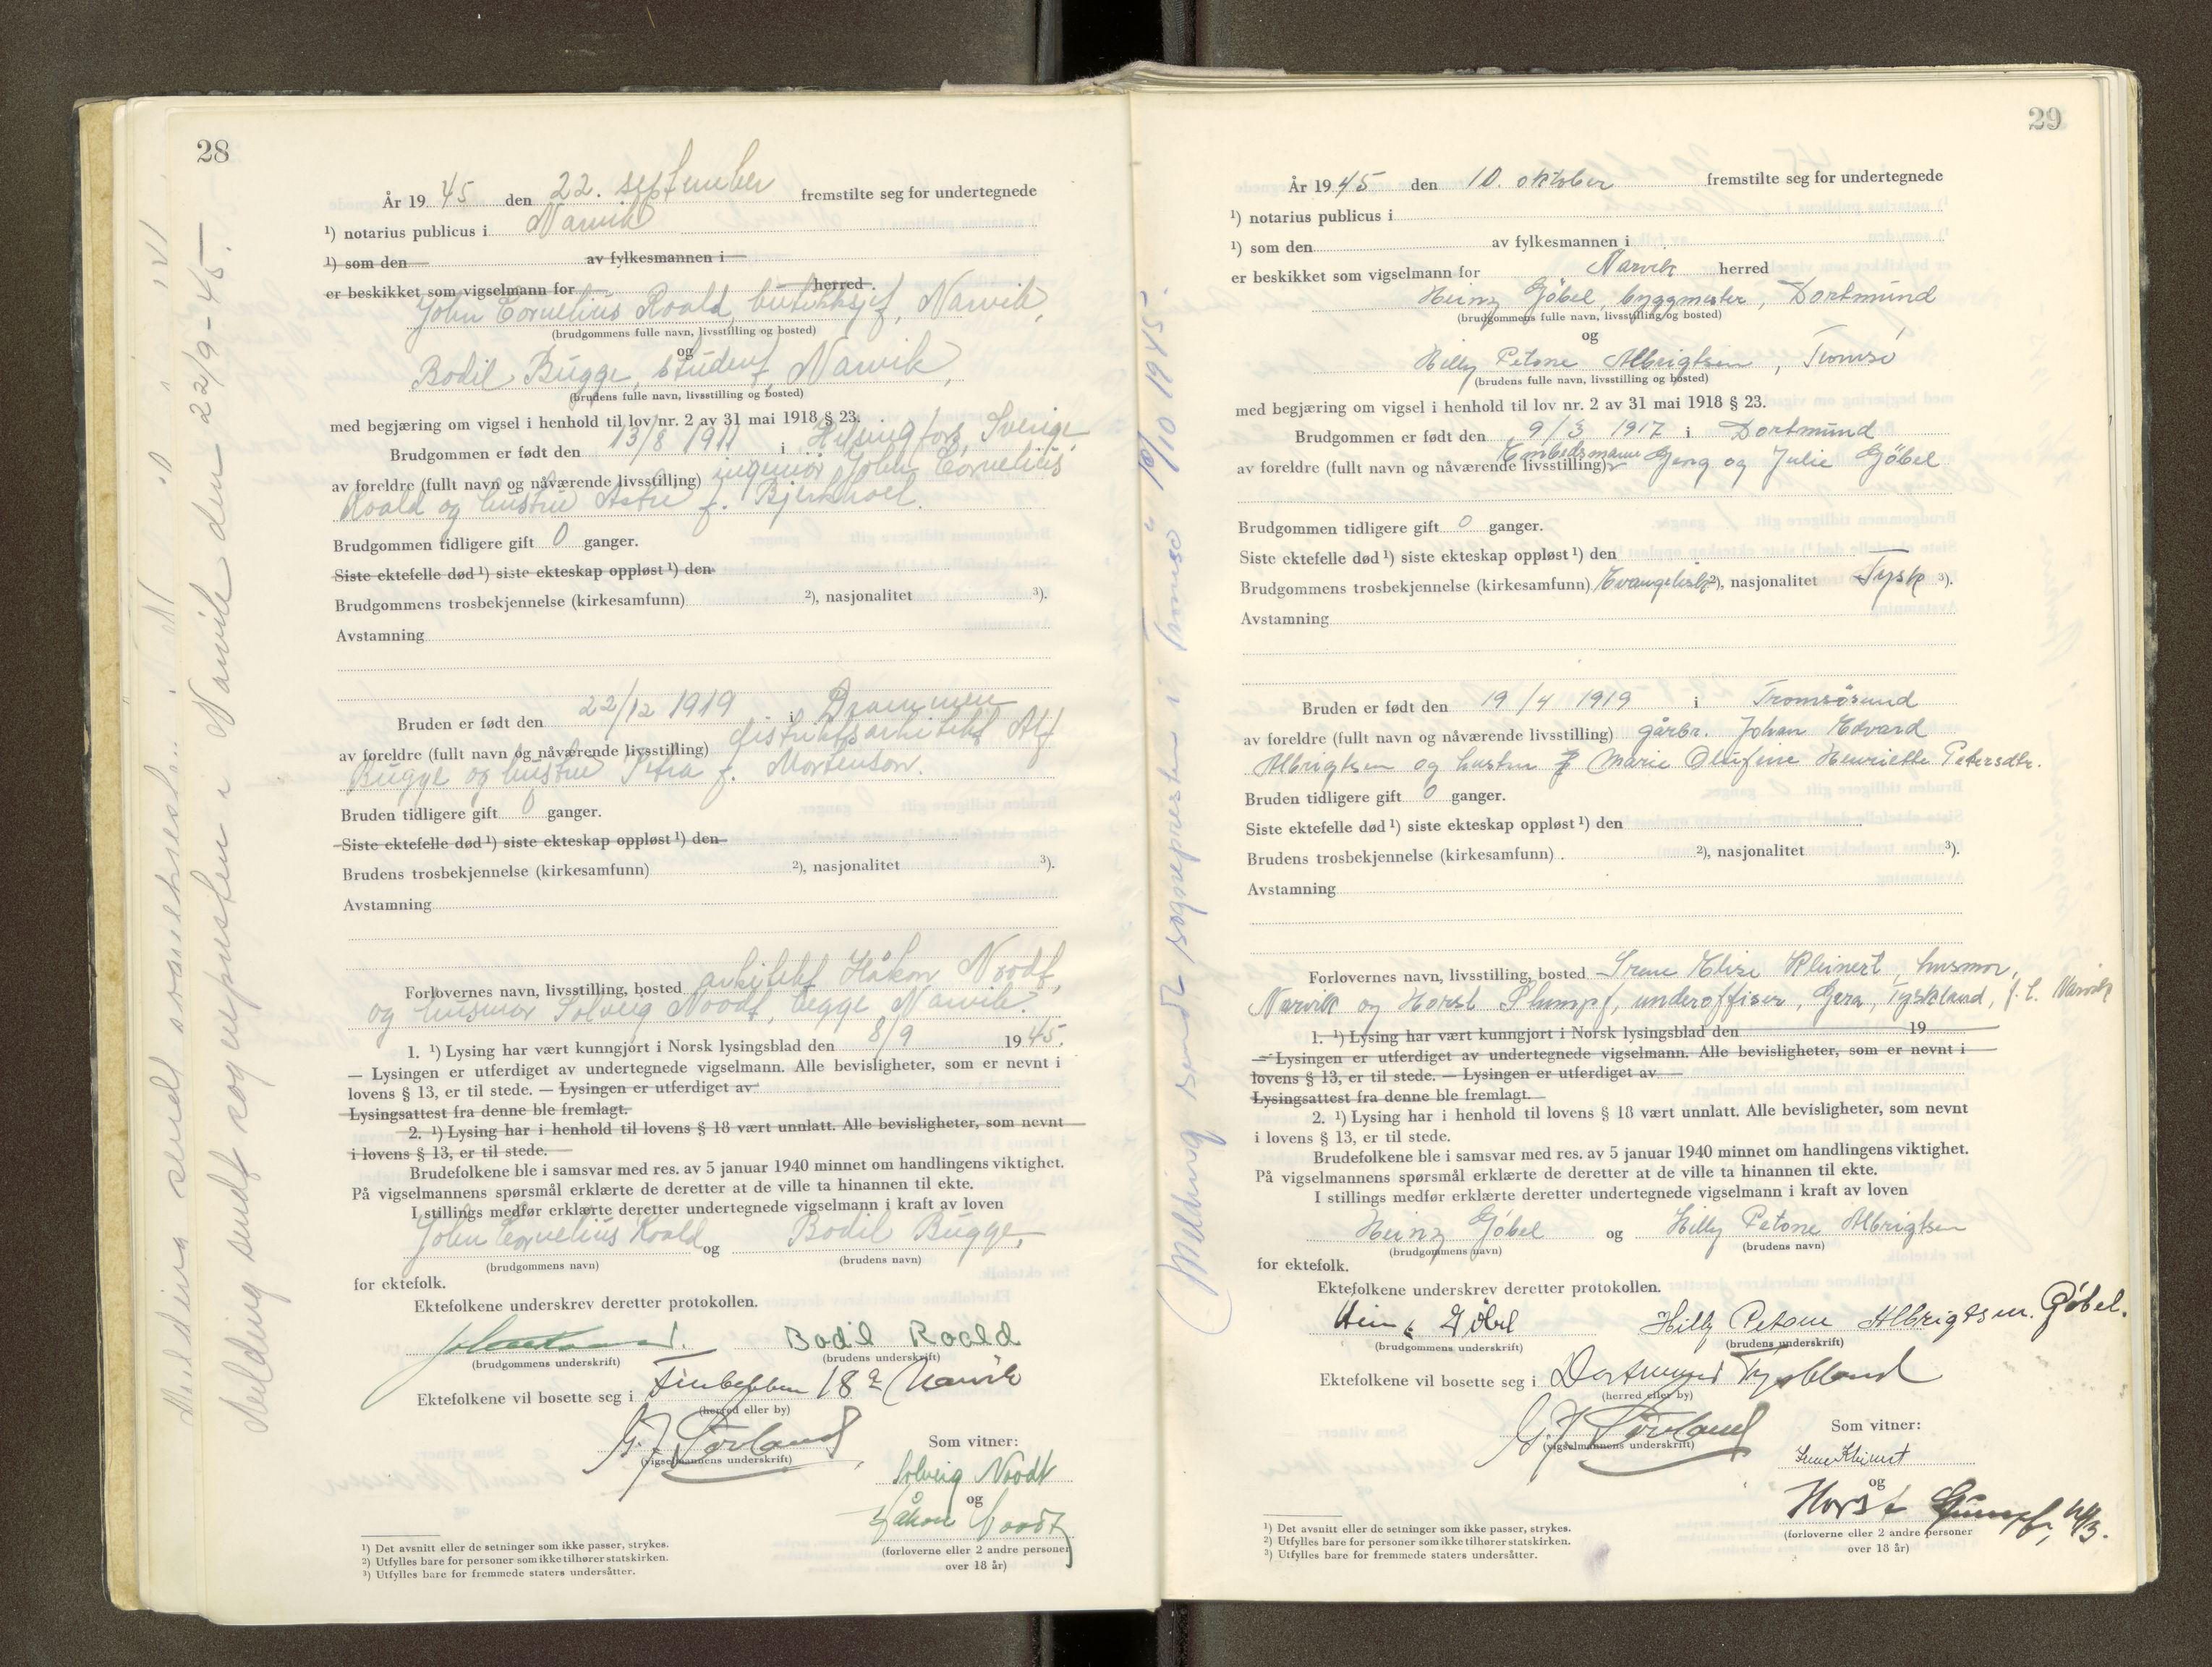 28
År 19 45 den 22. september fremstilte seg for undertegnede
¹) notarius publicus i Narvik
¹) som den av fylkesmannen i
er beskikket som vigselmann for herred.
John Cornelius Roald, butikksjef, Narvik,
(brudgommens fulle navn, livsstilling og bosted)
og
Bodil Bugge, student, Narvik,
(brudens fulle navn, livsstilling og bosted)
med begjæring om vigsel i henhold til lov nr. 2 av 31 mai 1918 § 23.
Brudgommen er født den 13/8 1911 i Helsingfors, Sverige,
av foreldre (fullt navn og nåværende livsstilling) ingeniør John Cornelius
Roald og hustru f. Bjerkhoel.
Brudgommen tidligere gift 0 ganger.
Siste ektefelle død ¹) siste ekteskap oppløst ¹) den
Brudgommens trosbekjennelse (kirkesamfunn) ²), nasjonalitet ³).
Avstamning
Bruden er født den 22/12 1919 i Drammen
av foreldre (fullt navn og nåværende livsstilling) distriktsarkitekt Alf
Bugge og hustru Petra f. Mortenson.
Bruden tidligere gift 0 ganger.
Siste ektefelle død ¹) siste ekteskap oppløst ¹) den
Brudens trosbekjennelse (kirkesamfunn) ²), nasjonalitet ³).
Avstamning
Forlovernes navn, livsstilling, bosted arkitekt Håkon Noodt,
og husmor Solveig Noodt, begge Narvik.
1. ¹) Lysing har vært kunngjort i Norsk lysingsblad den 8/9 19 45.
— Lysingen er utferdiget av undertegnede vigselmann. Alle bevisligheter, som er nevnt i
lovens § 13, er til stede. — Lysingen er utferdiget av
Lysingsattest fra denne ble fremlagt.
2. ¹) Lysing har i henhold til lovens § 18 vært unnlatt. Alle bevisligheter, som nevnt
i lovens § 13, er til stede.
Brudefolkene ble i samsvar med res. av 5 januar 1940 minnet om handlingens viktighet.
På vigselmannens spørsmål erklærte de deretter at de ville ta hinannen til ekte.
I stillings medfør erklærte deretter undertegnede vigselmann i kraft av loven
John Cornelius Roald og Bodil Bugge,
(brudgommens navn) (brudens navn)
for ektefolk.
Ektefolkene underskrev deretter protokollen.
Bodil Roald
(brudgommens underskrift) (brudens underskrift)
Ektefolkene vil bosette seg i 18 Narvik
(herred eller by)
(vigselmannens underskrift)
Som vitner:
Solveig Noodt
og
Håkon Noodt
(forloverne eller 2 andre personer
over 18 år)
¹) Det avsnitt eller de setninger som ikke passer, strykes.
²) Utfylles bare for personer som ikke tilhører statskirken.
³) Utfylles bare for fremmede staters undersåtter.
Melding sendt sognepresten i Narvik den 22/9-45.
29
År 19 45 den 10. oktober fremstilte seg for undertegnede
¹) notarius publicus i
¹) som den av fylkesmannen i
er beskikket som vigselmann for Narvik herred
Heinz Göbel, byggmester, Dortmund
(brudgommens fulle navn, livsstilling og bosted)
og
Hilly Petone Albrigtsen, Tromsö
(brudens fulle navn, livsstilling og bosted)
med begjæring om vigsel i henhold til lov nr. 2 av 31 mai 1918 § 23.
Brudgommen er født den 9/3 1917 i Dortmund
av foreldre (fullt navn og nåværende livsstilling) Embedsmann Georg og Julie Göbel
Brudgommen tidligere gift 0 ganger.
Siste ektefelle død ¹) siste ekteskap oppløst ¹) den
Brudgommens trosbekjennelse (kirkesamfunn) Evangelisk ²), nasjonalitet Tysk ³).
Avstamning
Bruden er født den 19/4 1919 i Tromsösund
av foreldre (fullt navn og nåværende livsstilling) gårbr. Johan Edvard
Albrigtsen og hustru Marie Olufine Henriette Petersdtr.
Bruden tidligere gift 0 ganger.
Siste ektefelle død ¹) siste ekteskap oppløst ¹) den
Brudens trosbekjennelse (kirkesamfunn) ²), nasjonalitet ³).
Avstamning
Forlovernes navn, livsstilling, bosted Irene Elise Kleinert, husmor,
Narvik og Horst Plumpf, underoffiser, Gera, Tyskland, f. t. Narvik
1. ¹) Lysing har vært kunngjort i Norsk lysingsblad den 19
— Lysingen er utferdiget av undertegnede vigselmann. Alle bevisligheter, som er nevnt i
lovens § 13, er til stede. — Lysingen er utferdiget av
Lysingsattest fra denne ble fremlagt.
2. ¹) Lysing har i henhold til lovens § 18 vært unnlatt. Alle bevisligheter, som nevnt
i lovens § 13, er til stede.
Brudefolkene ble i samsvar med res. av 5 januar 1940 minnet om handlingens viktighet.
På vigselmannens spørsmål erklærte de deretter at de ville ta hinannen til ekte.
I stillings medfør erklærte deretter undertegnede vigselmann i kraft av loven
Heinz Göbel og Hilly Petone Albrigtsen
(brudgommens navn) (brudens navn)
for ektefolk.
Ektefolkene underskrev deretter protokollen.
Heinz Göbel Hilly Petone Albrigtsen. Göbel.
(brudgommens underskrift) (brudens underskrift)
Ektefolkene vil bosette seg i Dortmund Tyskland
(herred eller by)
(vigselmannens underskrift)
Som vitner:
Irene Kleinert
og
Horst
(forloverne eller 2 andre personer
over 18 år)
¹) Det avsnitt eller de setninger som ikke passer, strykes.
²) Utfylles bare for personer som ikke tilhører statskirken.
³) Utfylles bare for fremmede staters undersåtter.
Melding sendt sognepresten i Tromsö 10/10 1945.